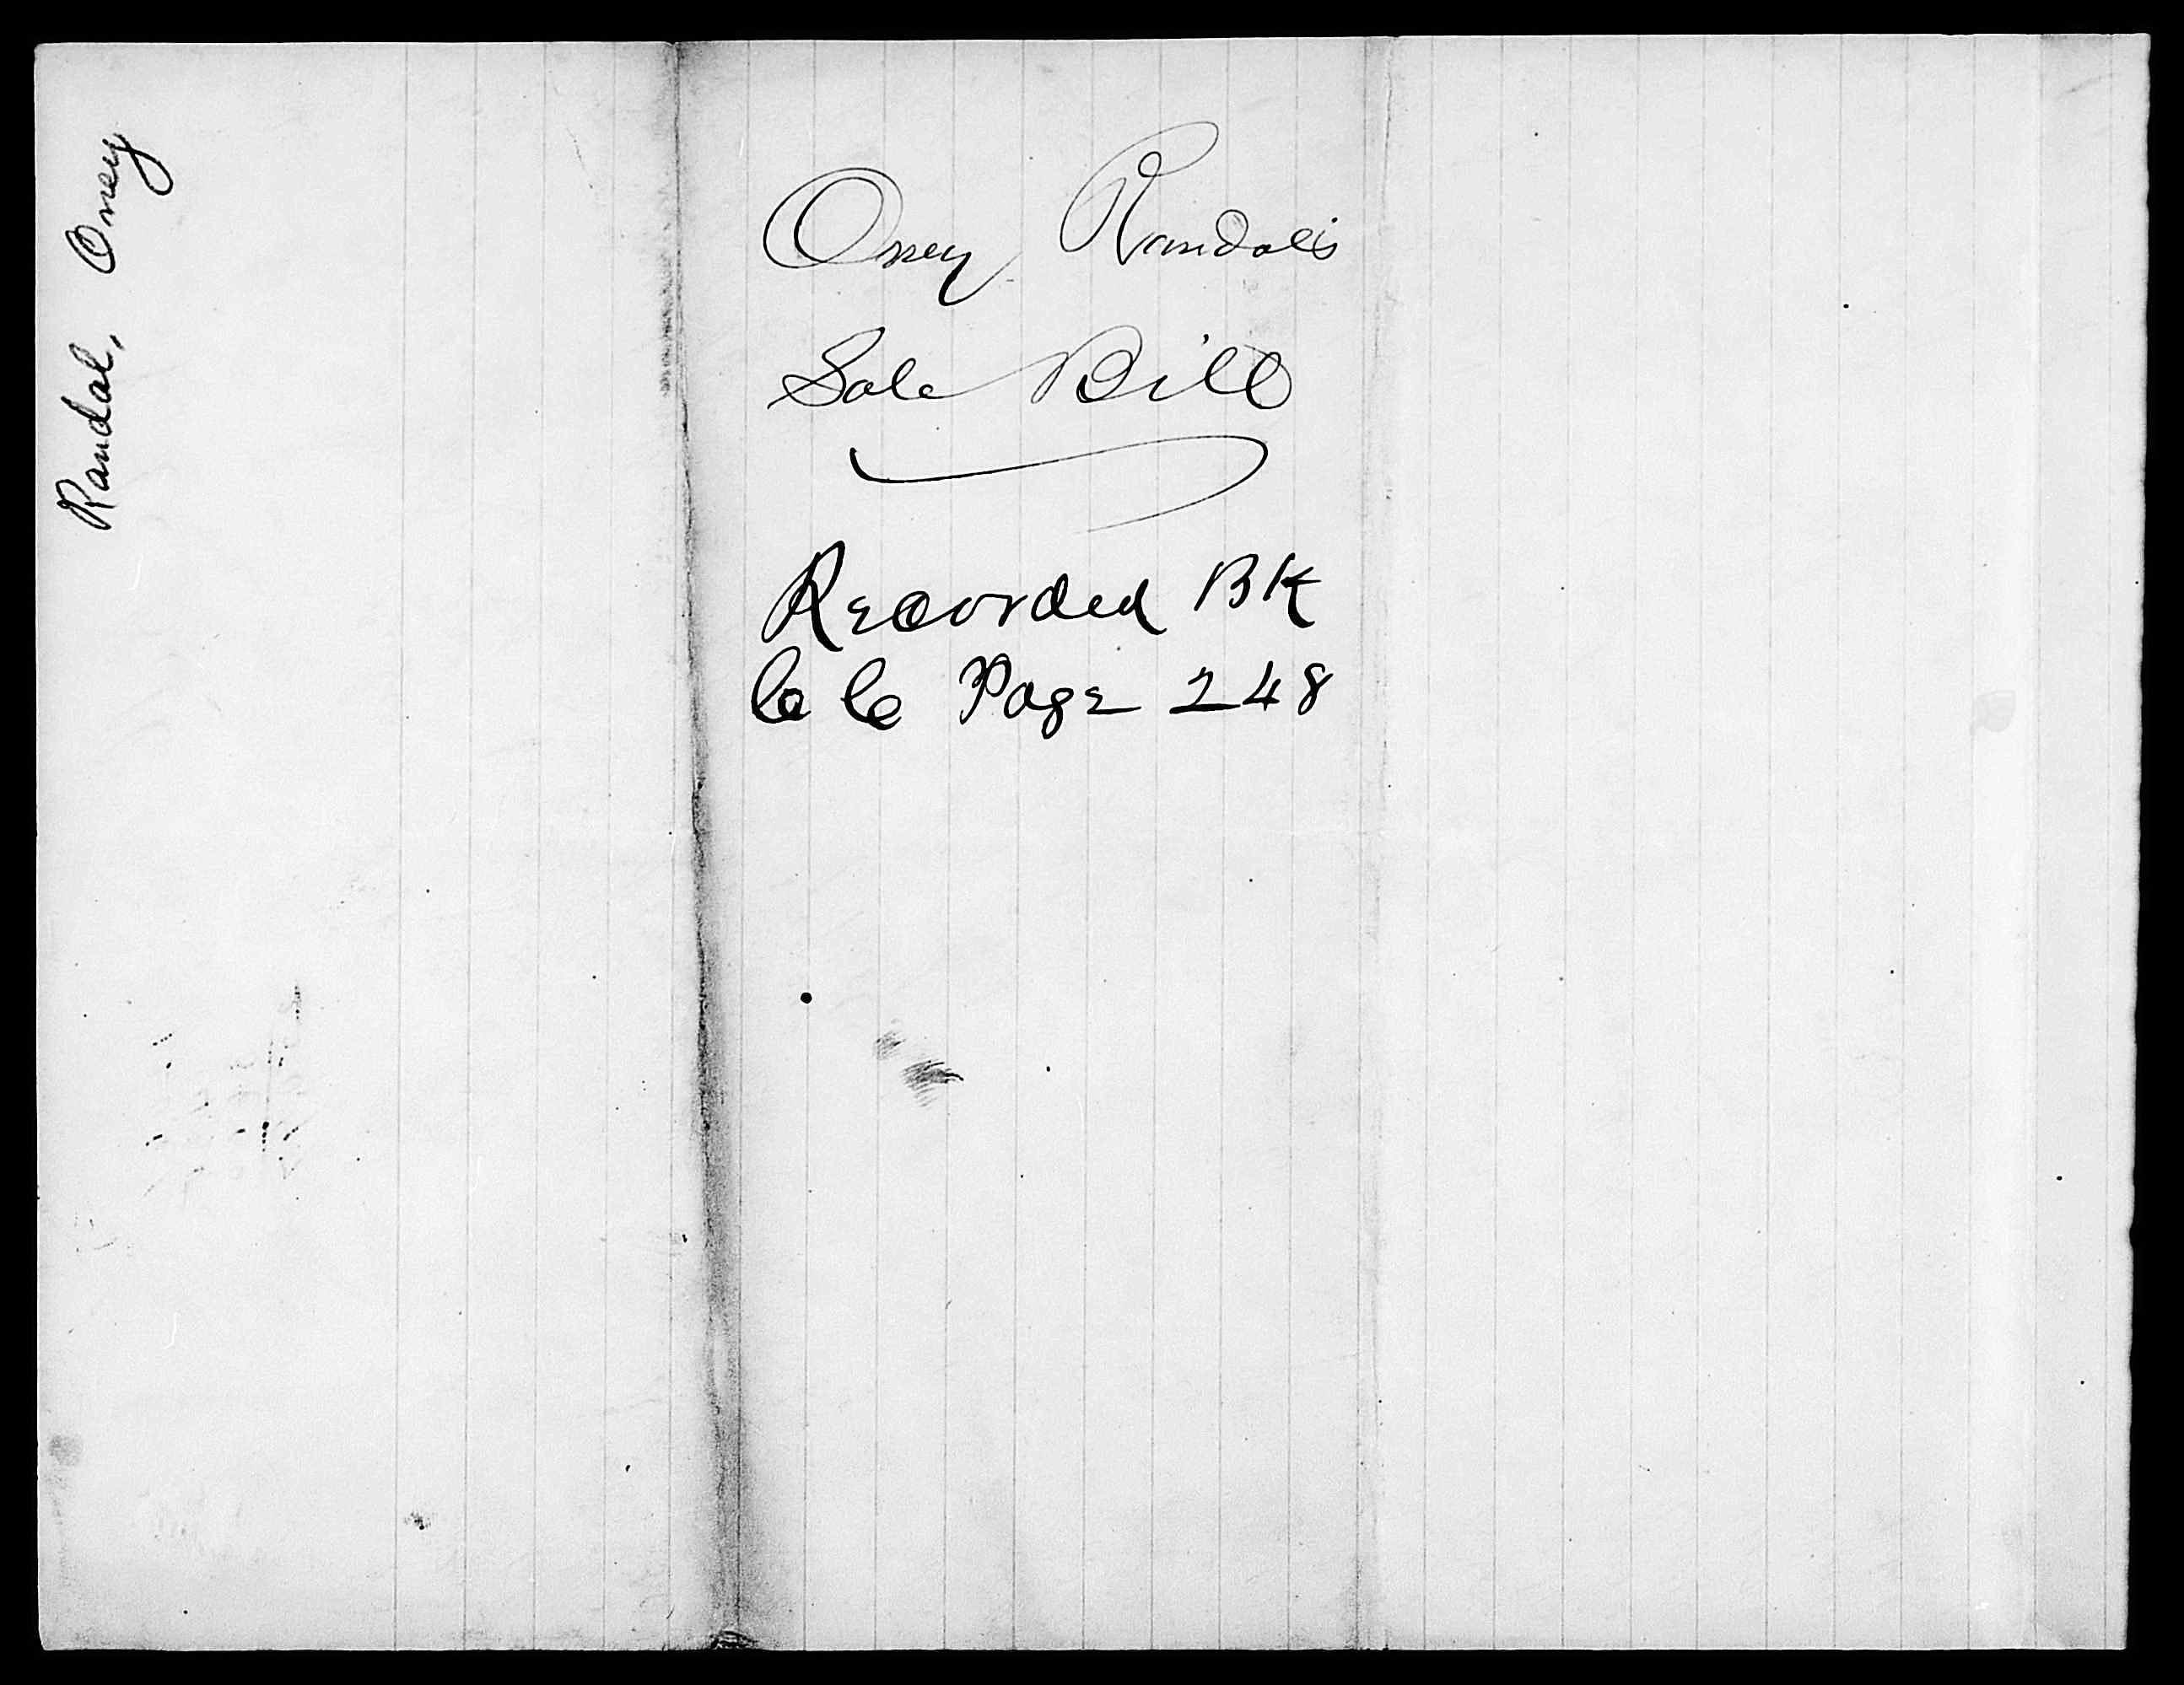 Randal, Oney
Oney Randal's
Sale Bill
Recorded BK
C C Page 248